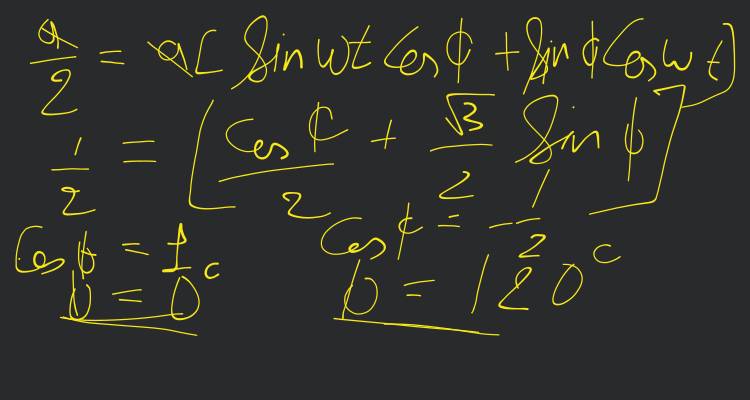 a/2 = a[ Sin wt Cos ϕ + Sin ϕ Cos w t]
1/2 = [Cos ϕ/2 + √3/2 Sin ϕ]
Cos ϕ = 1 Cos ϕ = -1/2
ϕ = 0° ϕ = 120°